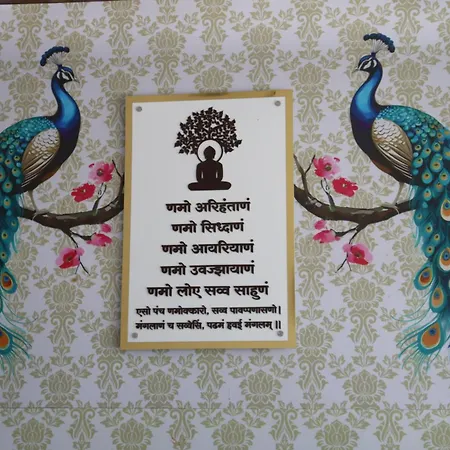 णमो अरिहंताणं
णमो सिध्दाणं
णमो आयरियाणं
णमो उवज्झायाणं
णमो लोए सव्व साहुणं
एसो पंच णमोक्कारो, सव्व पावप्पणासणो।
मंगलाणं च सव्वेसिं, पढमं हवई मंगलम् ॥